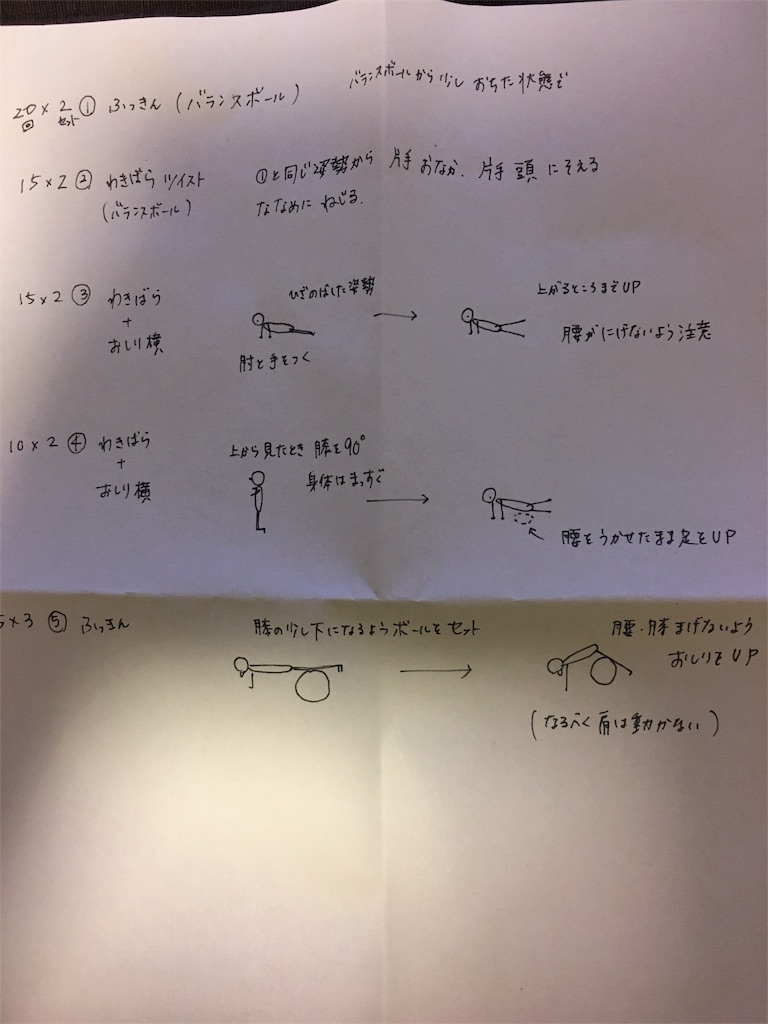 20 × 2 ① ふっきん (バランスボール) バランスボールから少し おちた状態で
回 セット
15 × 2 ② わきばら ツイスト ①と同じ姿勢から 片手 おなか、片手 頭 にそえる
(バランスボール) ななめに ねじる.
15 × 2 ③ わきばら ひざのばした姿勢 → 上がるところまでUP
+
おしり横 肘と手をつく 腰がにげないよう注意
10 × 2 ④ わきばら 上から見たとき 膝を90°
+ 身体はまっすぐ →
おしり横 腰をうかせたまま足をUP
5×3 ⑤ ふっきん 膝の少し下になるようボールをセット → 腰・膝まげないよう
おしりをUP
(なるべく肩は動かない)